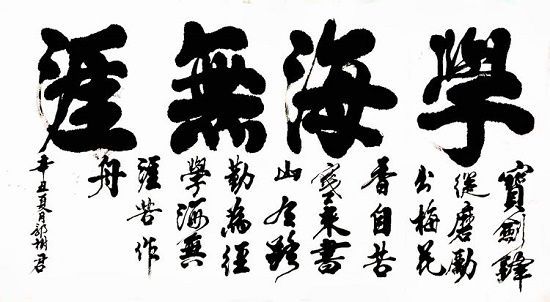 學海無涯
寶劍鋒
從磨勵
出梅花
香自苦
寒來書
山有路
勤為徑
學海無
涯苦作
舟
辛丑夏月